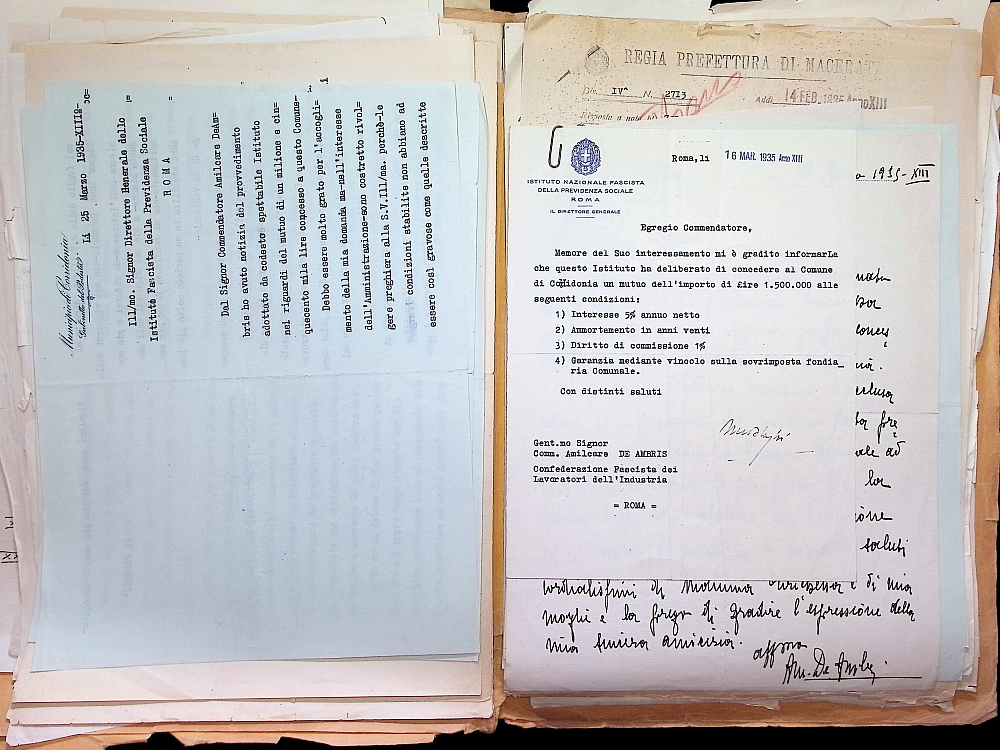 Municipio di Corridonia
Gabinetto del Podestà
Li 25 Marzo 1935-XIII°-
Ill/mo. Signor Direttore Henerale dello
Istituto Fascista della Previdenza Sociale
R O M A
Dal Signor Commendatore Amilcare DeAm=
bris ho avuto notizia del provvedimento
adottato da codesto spettabile Istituto
nei riguardi del mutuo di un milione e cin=
quecento mila lire concesso a questo Comune-
Debbo essere molto grato per l'accogli=
mento della mia domanda ma-nell'interesse
dell'Amministrazione-sono costretto rivol=
gere preghiera alla S.V.Ill/ma. perchè-le
condizioni stabilite non abbiano ad
essere così gravose come quelle descritte
REGIA PREFETTURA DI MACERATA
Div. IVª N. 2713
Addì 14 FEB. 1935 Anno XIII
Risposta a nota
1935-XIII
ISTITUTO NAZIONALE FASCISTA
DELLA PREVIDENZA SOCIALE
ROMA
IL DIRETTORE GENERALE
Roma,li 16 MAR. 1935 Anno XIII
Egregio Commendatore,
Memore del Suo interessamento mi è gradito informarLa
che questo Istituto ha deliberato di concedere al Comune
di Corridonia un mutuo dell'importo di £ire 1.500.000 alle
seguenti condizioni:
1) Interesse 5% annuo netto
2) Ammortamento in anni venti
3) Diritto di commissione 1%
4) Garanzia mediante vincolo sulla sovrimposta fondia_
ria Comunale.
Con distinti saluti
Gent.mo Signor
Comm. Amilcare DE AMBRIS
Confederazione Fascista dei
Lavoratori dell'Industria
= ROMA =
la
saluti
cordialissimi di Mamma e di mia
moglie e la prego di gradire l'espressione della
mia sincera amicizia.
affmo
Am. De Ambris